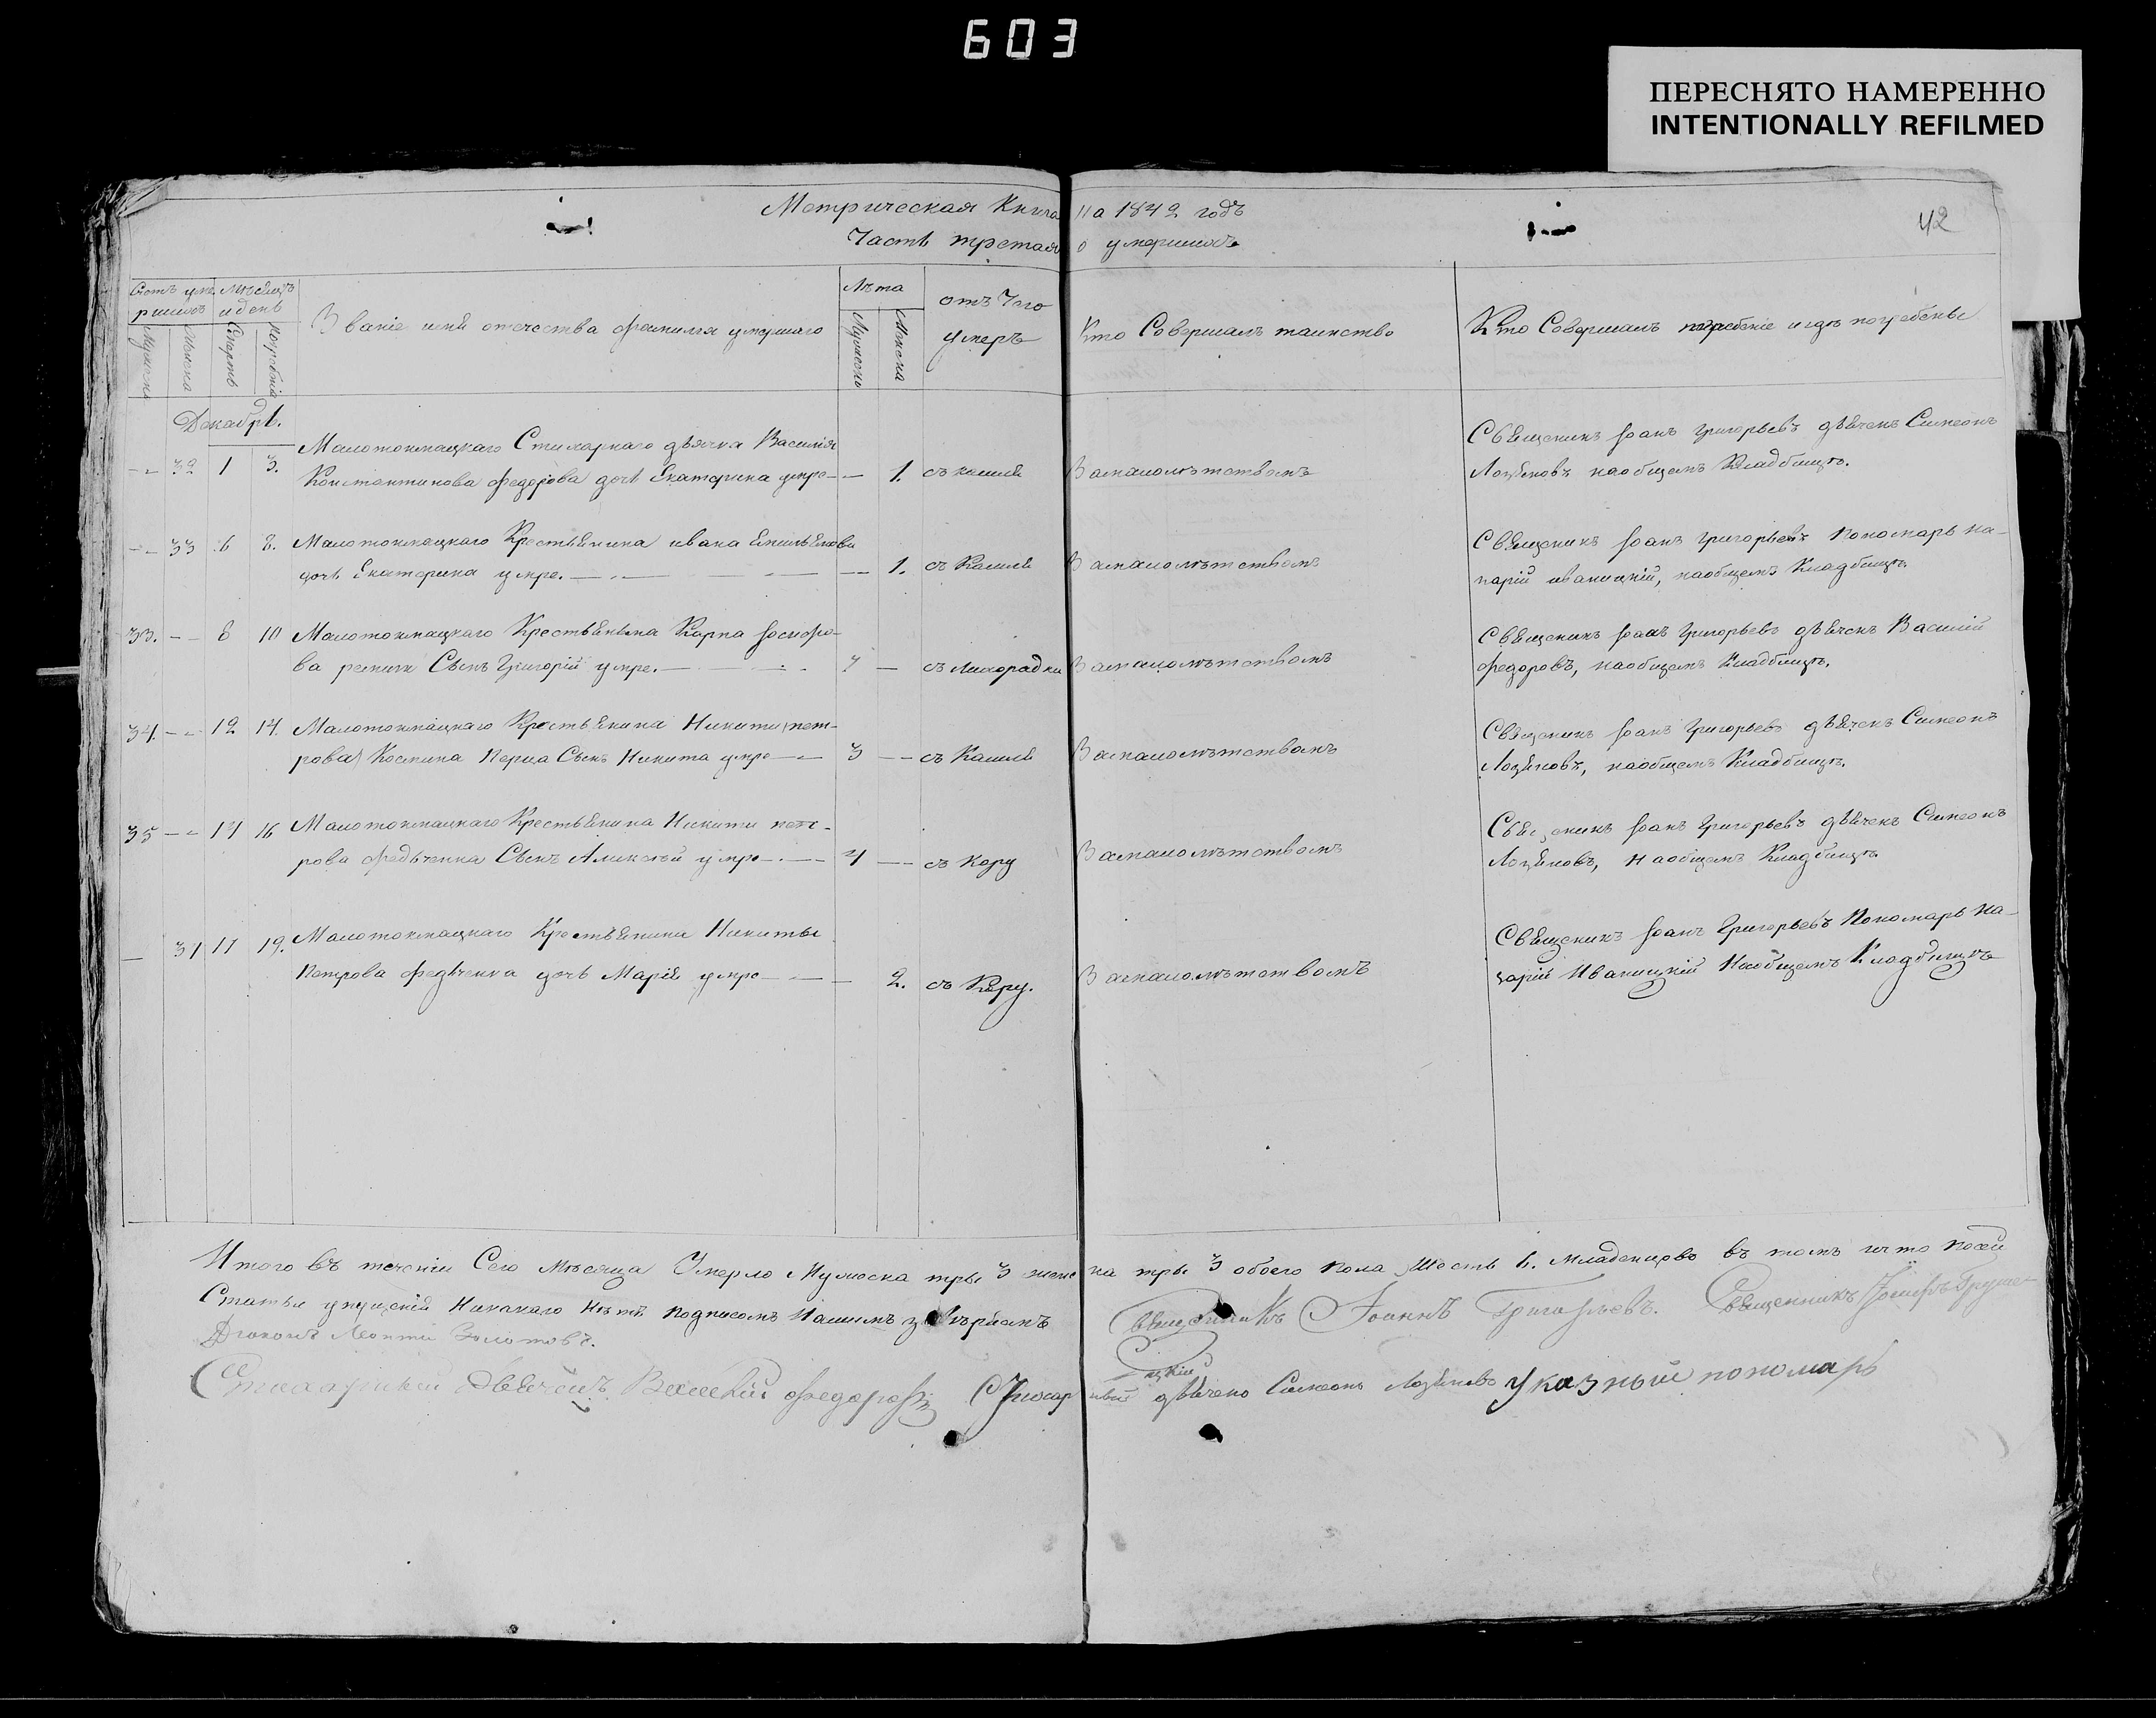 603
ПЕРЕСНЯТО НАМЕРЕННО
INTENTIONALLY REFILMED
42
Метрическая Книга на 1842 годъ
Часть третая о умершихъ
Счотъ уме- Мѣсяцъ
ршихъ и день
Мужеска Женска Смерть погребенія
Званіе имя отечества фамилія умершаго
Лѣта
Мужеска Женска
отъ Чего
умеръ
Кто Совершалъ таинство
Кто Совершалъ погребеніе и гдѣ погребены
Декабрь.
Малотокмацкаго Стихарнаго дьячка Василія
-- 32 1 3. Константинова федорова дочь Екатерина умре — 1. съ кашля
Священикъ Іоанъ Григорьевъ дьячекъ Симеонъ
наобщемъ Кладбищѣ.
-- 33 6 8. Малотокмацкаго Крестьянина ивана
дочь Екатерина умре. — 1. съ Кашля
Священикъ Іоанъ Григорьевъ Пономарь На-
зарій иваницкій, наобщемъ Кладбищѣ.
33. -- 8 10 Малотокмацкаго Крестьянина Карпа Іосифо-
ва Сынъ Григорій умре. — съ лихорадки
Священикъ Іоанъ Григорьевъ дьячекъ Василій
федоровъ, наобщемъ Кладбищѣ.
34. -- 12 14. Малотокмацкаго Крестьянина Никити пет-
рова Сынъ Никита умре — 3 -- съ Кашля
Священикъ Іоанъ Григорьевъ дьячекъ Симеонъ
наобщемъ Кладбищѣ.
35 -- 14 16 Малотокмацкаго Крестьянина Никити пет-
рова федьченка Сынъ Аликсѣй умре — 4 -- съ Кору
Священикъ Іоанъ Григорьевъ дьячекъ Симеонъ
наобщемъ Кладбищѣ.
— 34 17 19. Малотокмацкаго Крестьянина Никиты
Петрова федьченка дочь Марія умре — 2. съ Кору.
Священикъ Іоанъ Григорьевъ Пономарь На-
зарій Иваницкій Наобщемъ Кладбищѣ
Итого въ теченіи Сего Мѣсяца Умерло Мужеска три 3 женска три 3 обоего пола шесть 6. младенцовъ въ томъ что
Статьи упущенія Никакаго Нѣтъ подписомъ Нашимъ
Священникъ Іоаннъ Григорьевъ. Священникъ
Діаконъ Леонтій Золотовъ.
Стихарный Дьячекъ Василій федоровъ Стихарный дьячекъ Симеонъ Указный пономарь